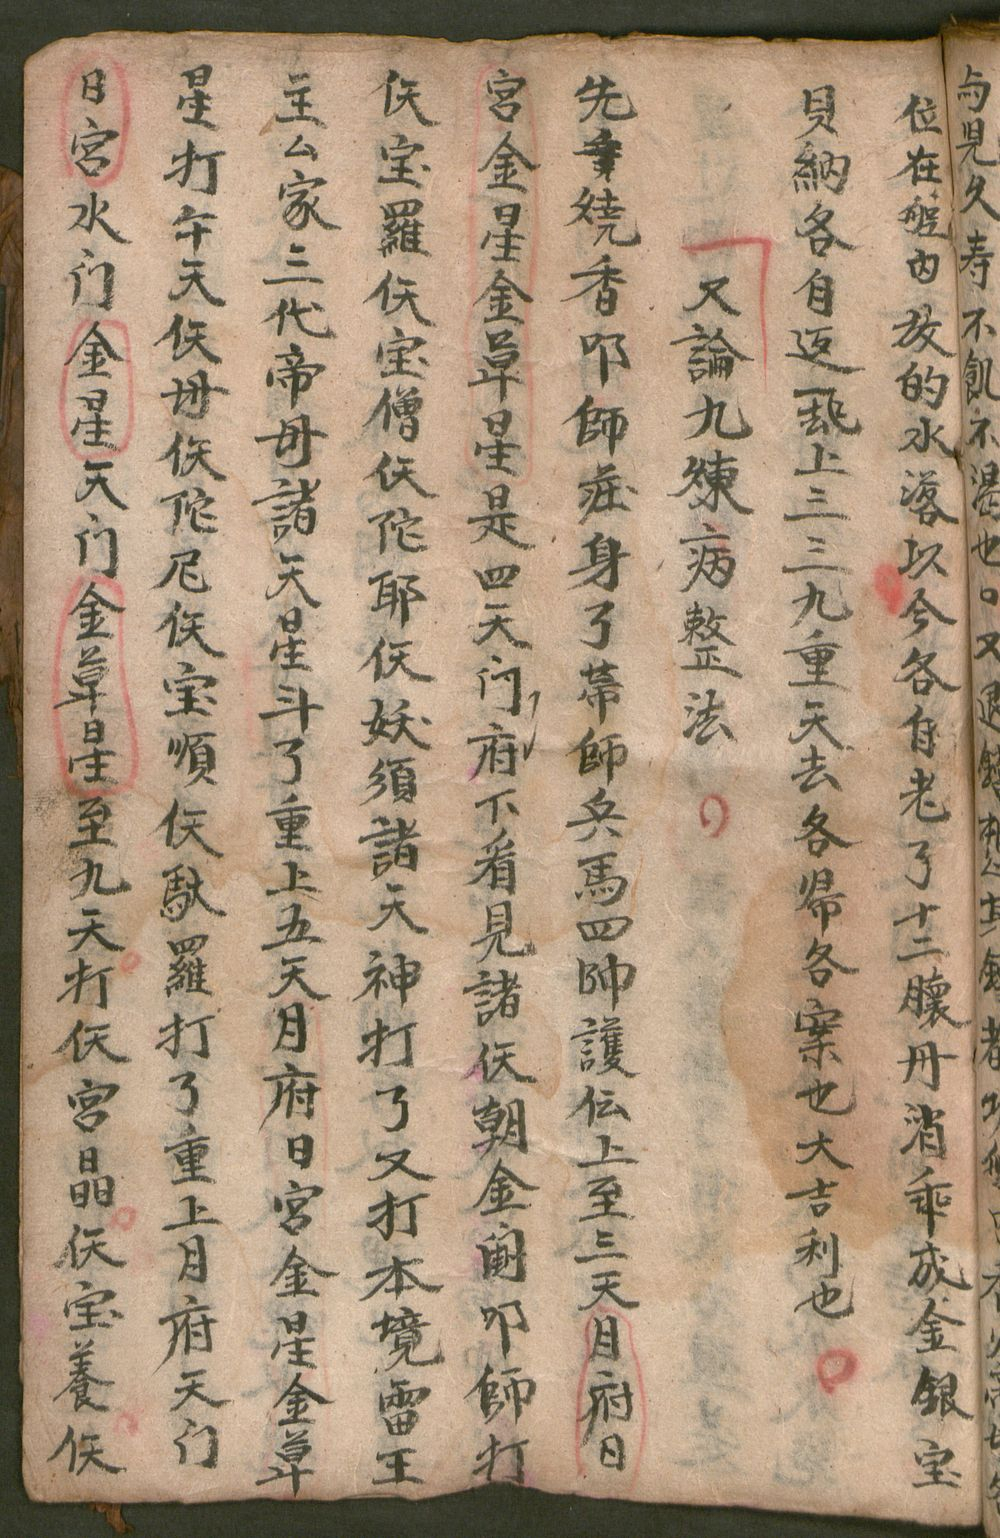 与見久寿不飢不渴也又退
位在壇内放的水落以今各自老了十二臟丹消乖成金銀宝
貝納各自返載上三三九重天去各帰各案也大吉利也
又論九煉病整法
先来燒香叩師莊身了帯師兵馬四帥護伝上至三天月府日
宮金星金草星是四天门府不看見諸仸朝金闕叩師打
仸宝羅仸宝僧仸陀耶仸妖須諸天神打了又打本境雷王
主公家三代帝母諸天星斗了重上五天月府日宮金星金草
星打午天仸母仸陀尼仸宝順仸馱羅打了重上月府天门
日宮水门金星天门金草星至九天打仸宮晶仸宝養仸